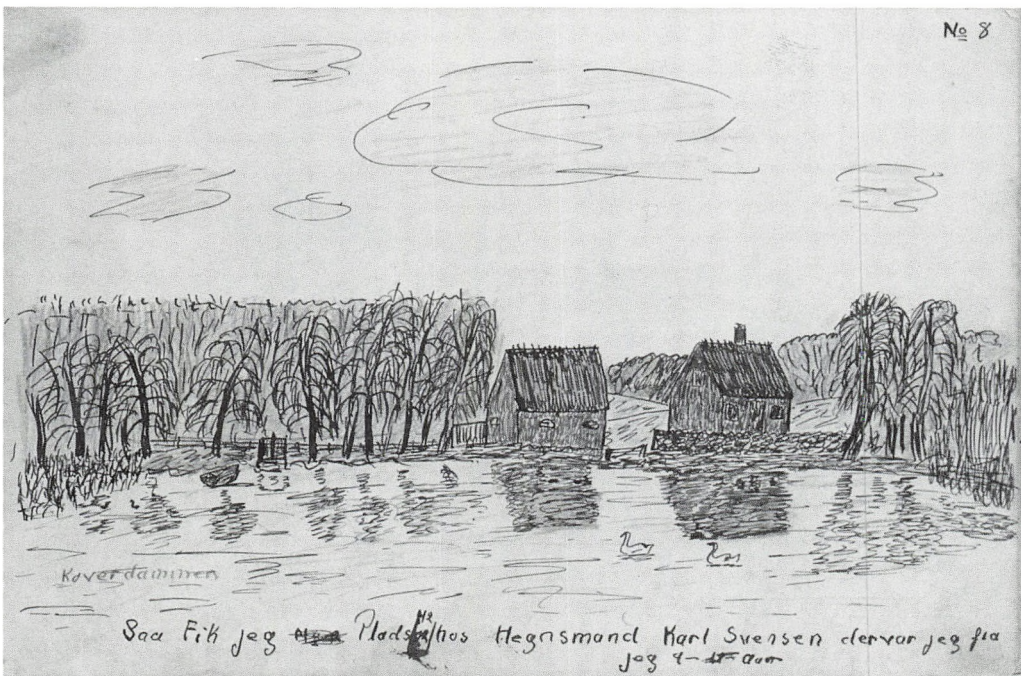 No 8
Kaverdammen
Saa Fik jeg Plads hos Hegnsmand Karl Svensen dervar jeg fra
jeg 9- aar